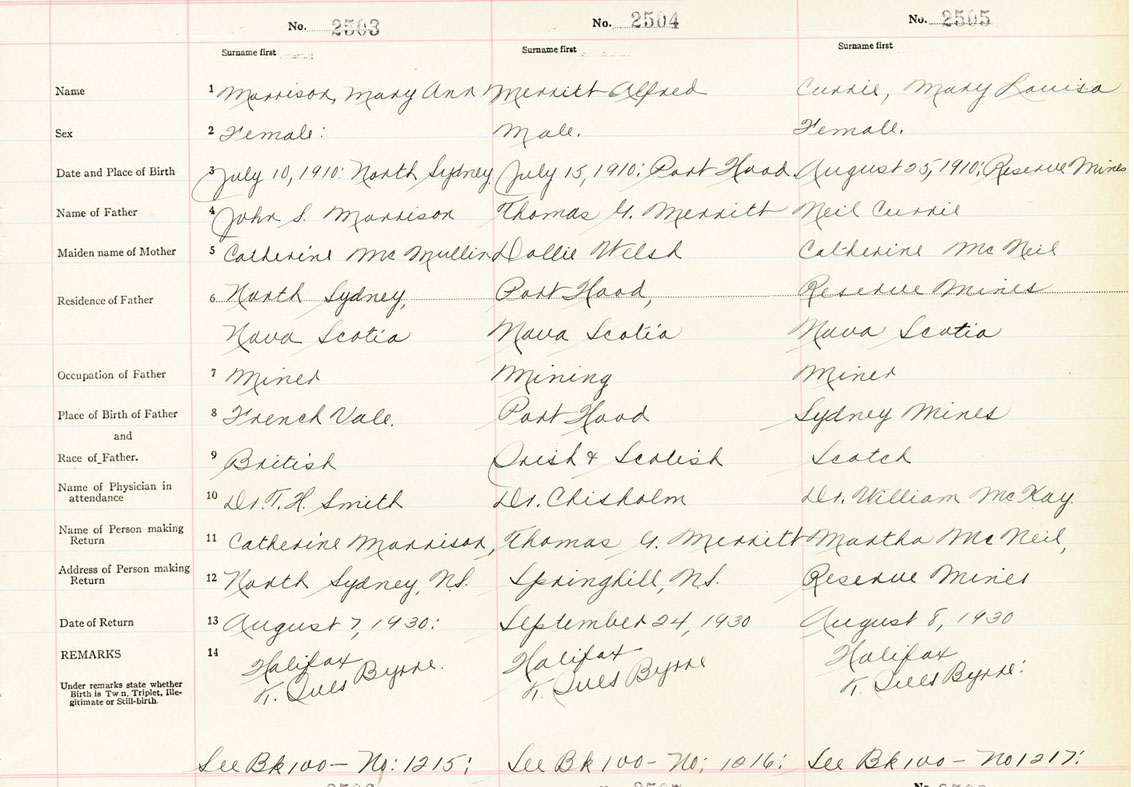 No. 2503 No. 2504 No. 2505
Surname first Surname first Surname first
Name 1 Morrison, Mary Ann Merritt Alfred Currie, Mary Louisa
Sex 2 Female: Male. Female.
Date and Place of Birth 3 July 10, 1910: North Sydney July 15, 1910: Port Hood. August 25, 1910; Reserve Mines
Name of Father 4 John S. Morrison Thomas G. Merritt Neil Currie
Maiden name of Mother 5 Catherine Mc Mullin Dollie Welsh Catherine Mc Neil
Residence of Father 6 North Sydney, Port Hood, Reserve Mines
Nova Scotia Nova Scotia Nova Scotia
Occupation of Father 7 Miner Mining Miner
Place of Birth of Father 8 French Vale. Port Hood Sydney Mines
and
Race of Father. 9 British Irish & Scotish Scotch
Name of Physician in
attendance 10 Dr. T. H. Smith Dr. Chisholm Dr. William McKay.
Name of Person making
Return 11 Catherine Morrison, Thomas G. Merritt Martha Mc Neil,
Address of Person making
Return 12 North Sydney, N.S. Springhill, N.S. Reserve Mines
Date of Return 13 August 7, 1930: September 24, 1930 August 8, 1930
REMARKS 14 Halifax Halifax Halifax
Byrne. Byrne Byrne:
Under remarks state whether
Birth is Twin, Triplet, Ille-
gitimate or Still-birth.
See Bk 100 - No: 1215; See Bk 100 - No; 1216; See Bk 100 - No 1217: